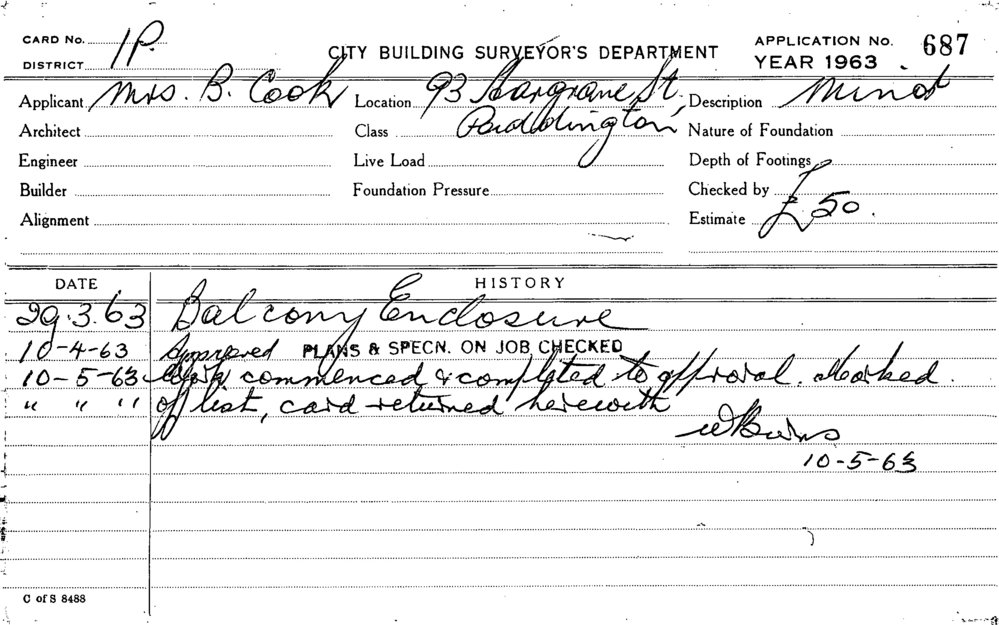 CARD No. 1P
DISTRICT
CITY BUILDING SURVEYOR'S DEPARTMENT
APPLICATION No. 687
YEAR 1963
Applicant Mrs. B. Cook Location 93 Hargrave St, Description Minor
Architect Class Paddington Nature of Foundation
Engineer Live Load Depth of Footings
Builder Foundation Pressure Checked by
Alignment Estimate £50.
DATE HISTORY
29.3.63 Balcony Enclosure
10-4-63 Approved PLANS & SPECN. ON JOB CHECKED
10-5-63 Work commenced & completed to approval. Marked
" " " off list, card returned herewith
WBurns
10-5-63
C of S 8488